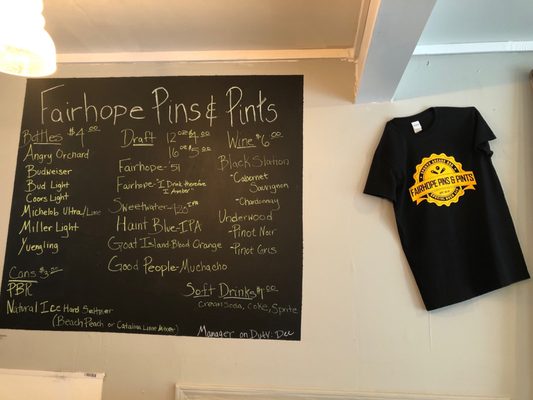 Fairhope Pins & Pints
Bottles $4.00
Angry Orchard
Budweiser
Bud Light
Coors Light
Michelob Ultra/Lime
Miller Light
Yuengling
Cans $3.00
PBR
Natural Ice Hard Seltzer
(Beach Peach or Catalina Lime Mixer)
Draft 12oz $4.00
16oz 5.00
Fairhope-51
Fairhope-I Drink therefore
I Amber
Sweetwater-420 IPA
Haint Blue-IPA
Goat Island Blood Orange
Good People-Muchacho
Wine $6.00
Black Station
-Cabernet
Sauvignon
-Chardonnay
Underwood
-Pinot Noir
-Pinot Gris
Soft Drinks $1.00
Cream Soda, Coke, Sprite
Manager on Duty: Dee
FAIRHOPE PINS & PINTS